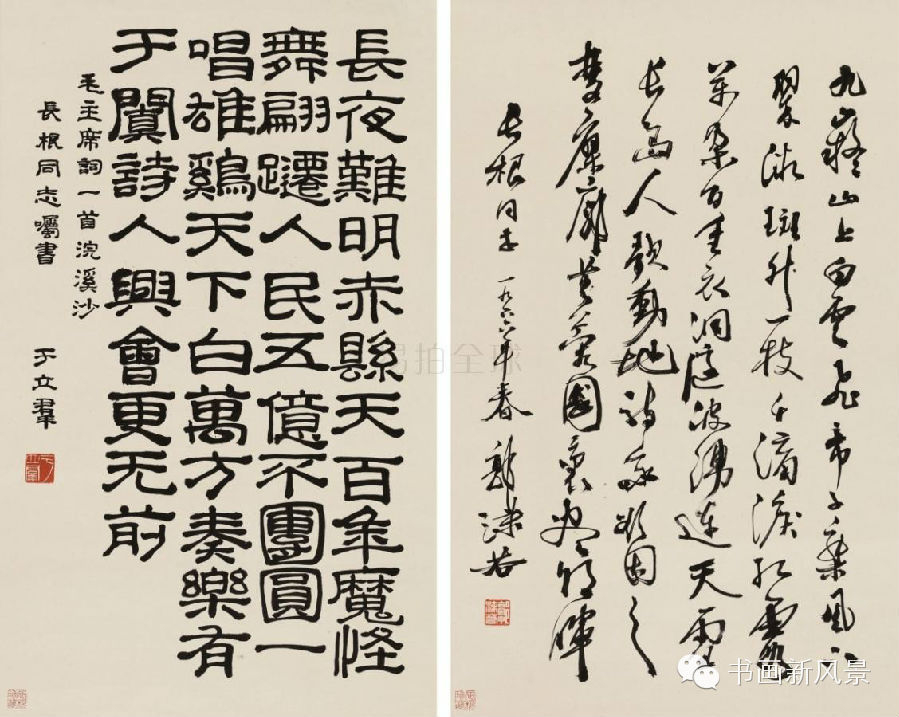 九嶷山上白雲飛帝子乘風下
翠微斑竹一枝千滴淚紅霞
萬朵百重衣洞庭波湧連天雪
長島人歌動地詩我欲因之
夢寥廓芙蓉國裏盡朝暉
長根同志 一九六六年春 郭沫若
長夜難明赤縣天百年魔怪
舞翩躚人民五億不團圓一
唱雄鷄天下白萬方奏樂有
于闐詩人興會更无前
毛主席詞一首浣溪沙
長根同志囑書
于立羣
易拍全球
书画新风景